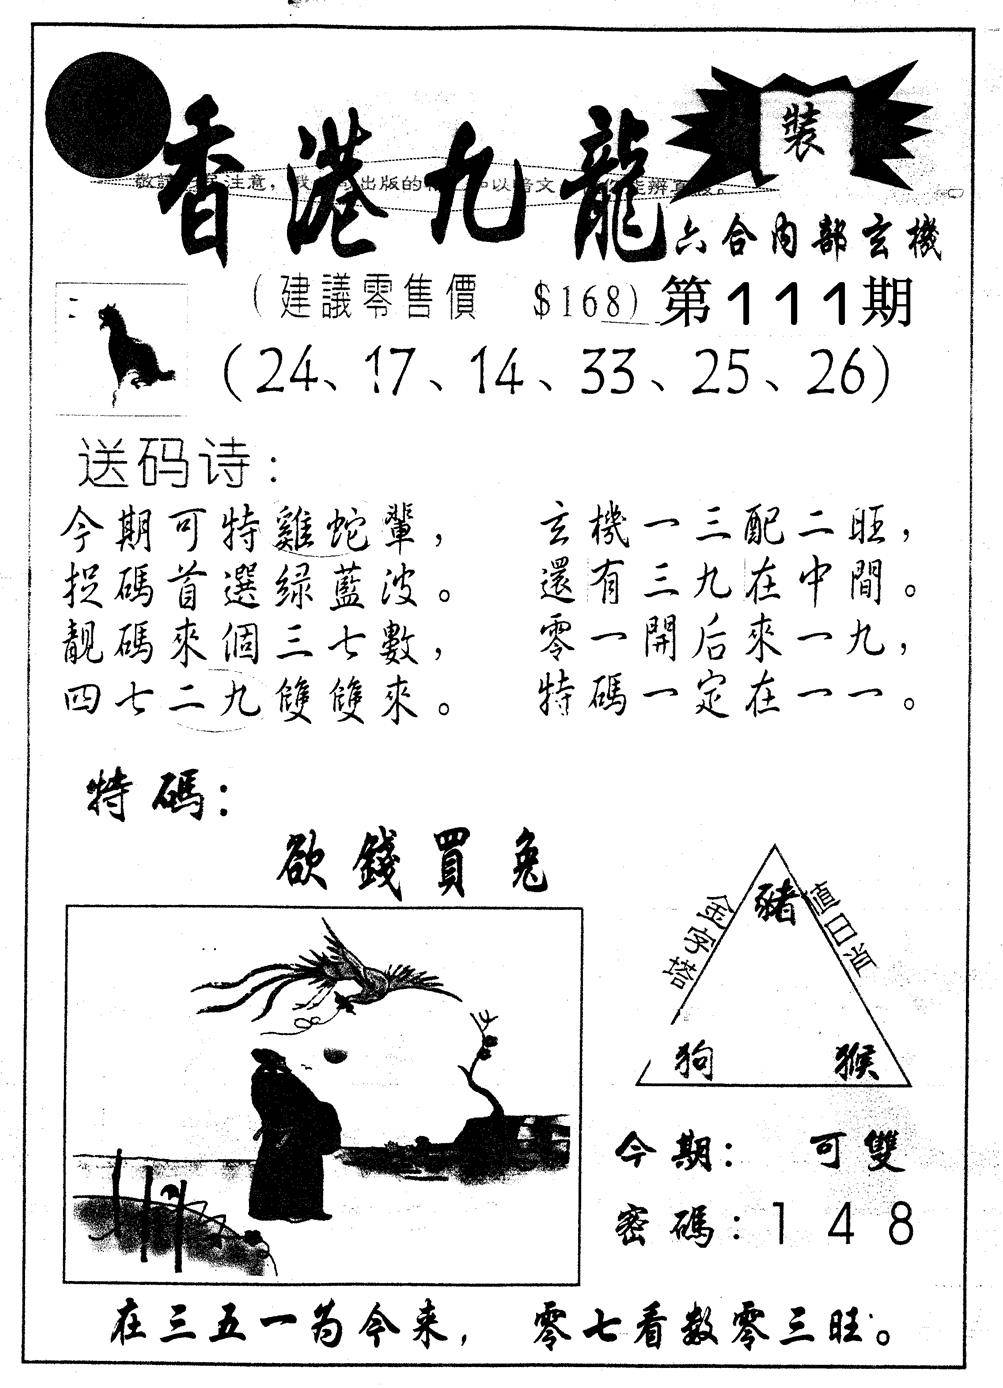 裝
香港九龍
注意，出版的以暗文
六合内部玄機
（建議零售價 $168）第111期
（24、17、14、33、25、26）
送码诗：
今期可特雞蛇輩，
捉碼首選绿藍波。
靚碼來個三七數，
四七二九雙雙來。
玄機一三配二旺，
還有三九在中間。
零一開后來一九，
特碼一定在一一。
特碼：
欲錢買兔
金字塔
值日肖
豬
狗 猴
今期： 可雙
密碼：1 4 8
在三五一为今来， 零七看数零三旺。